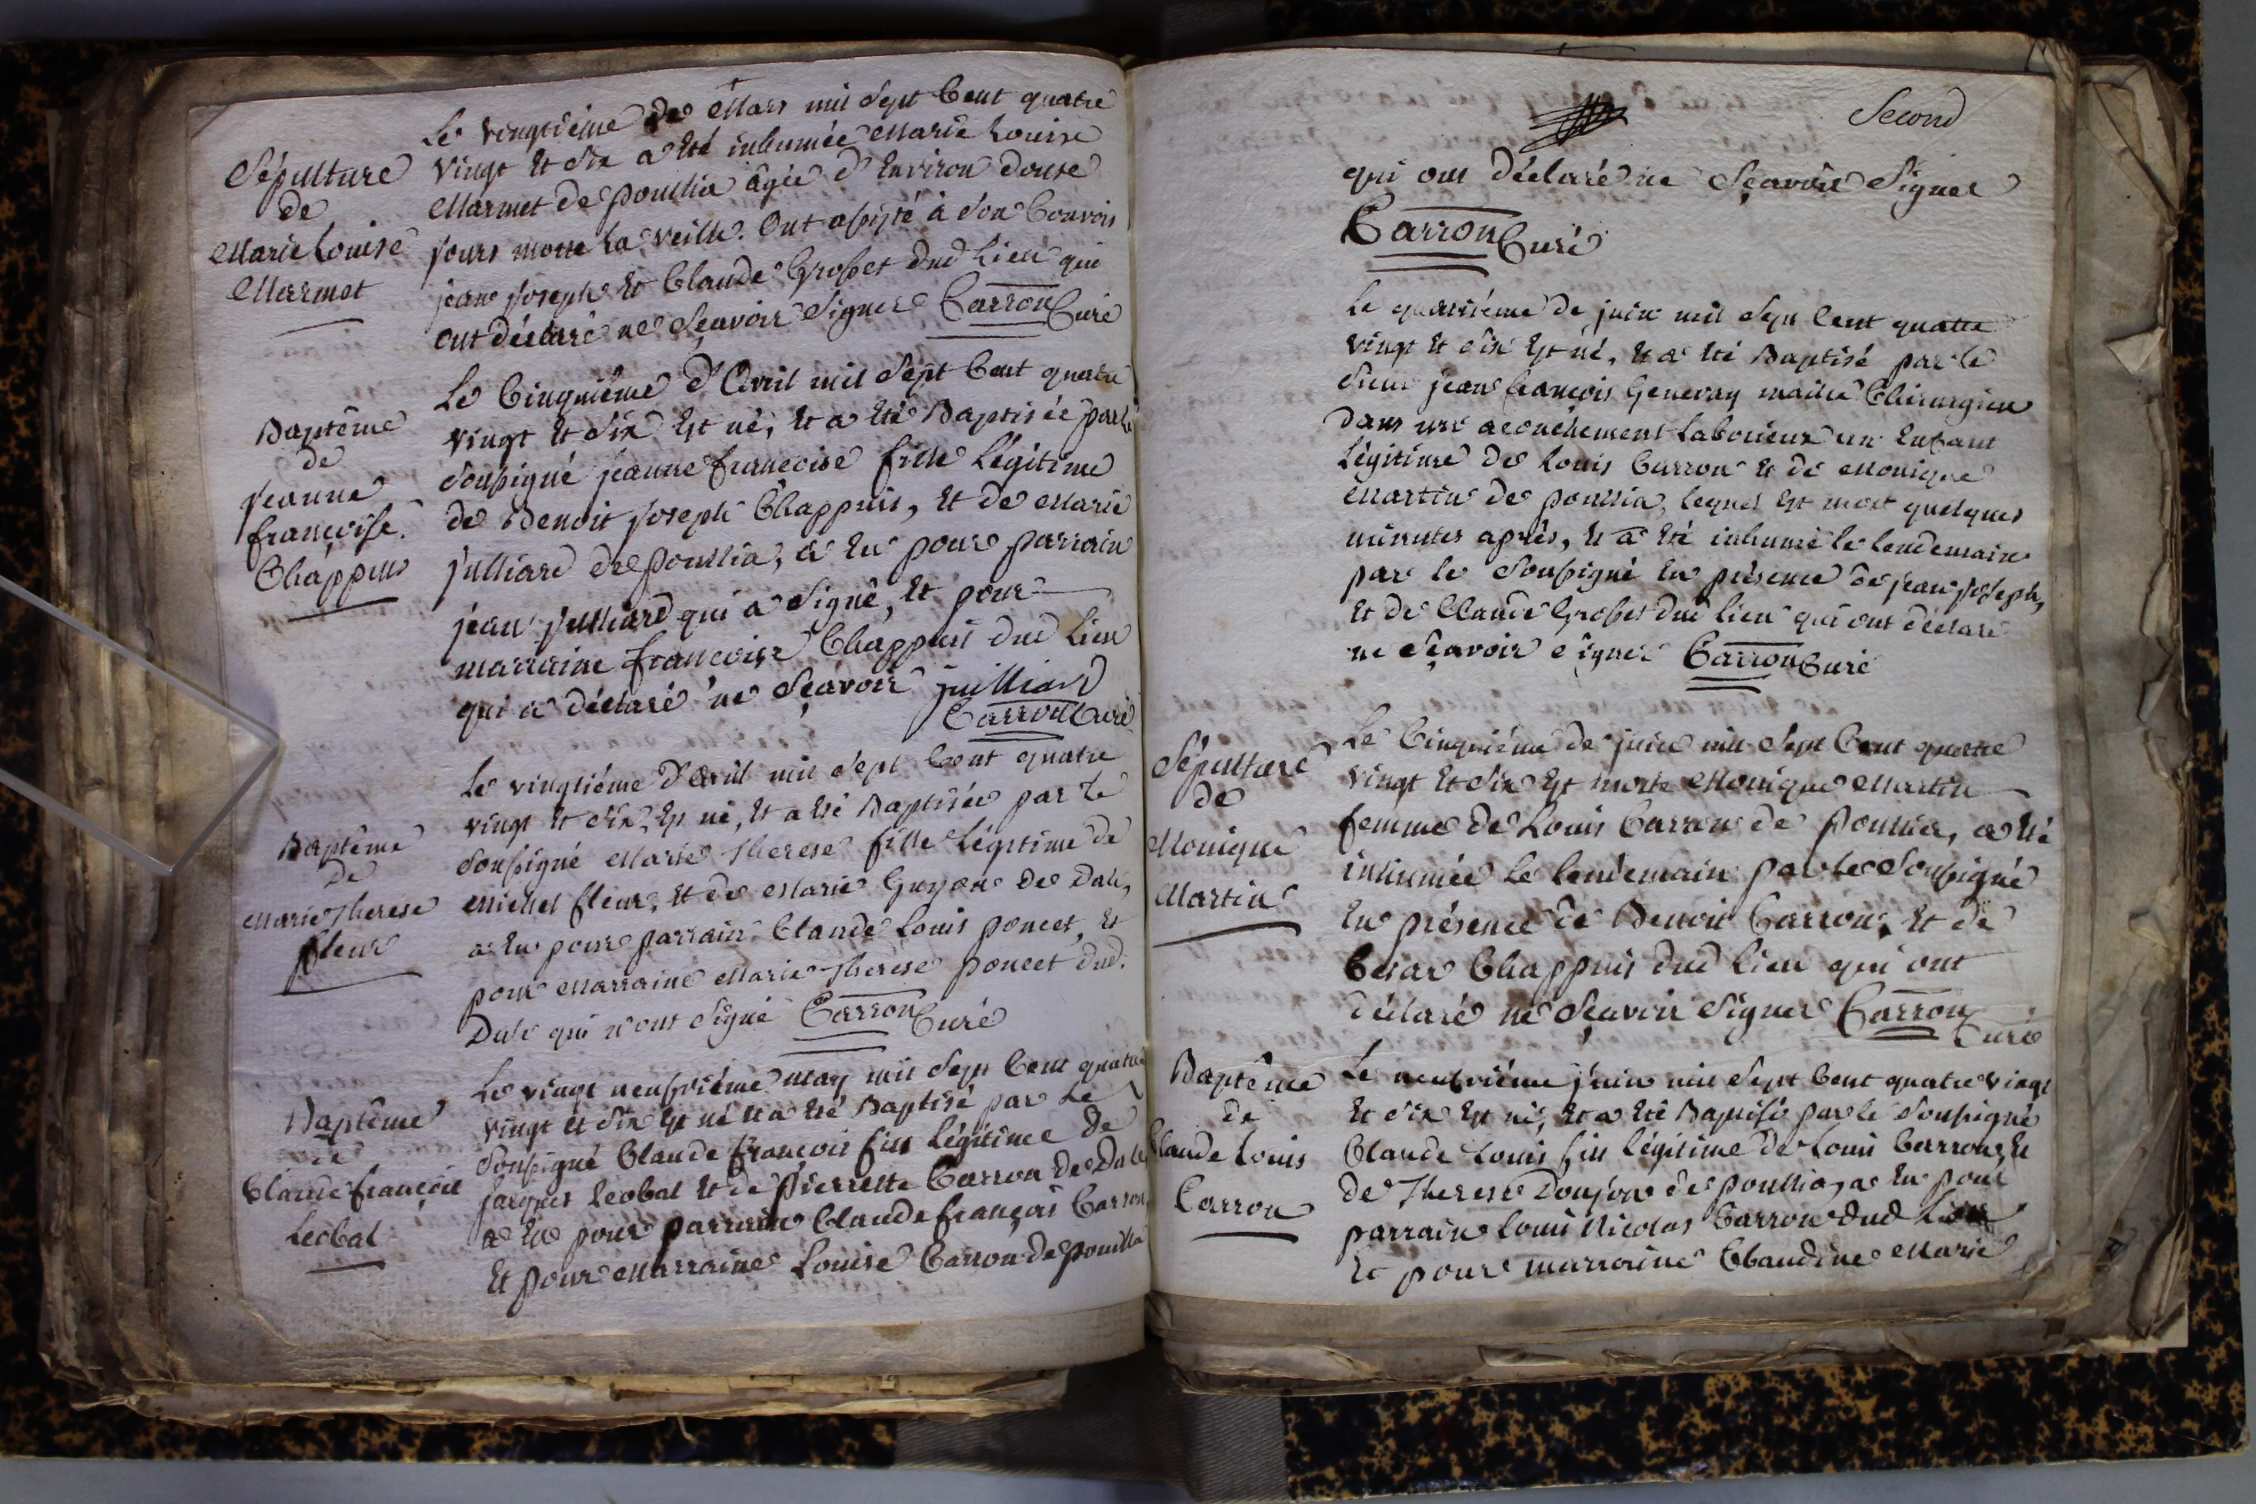 Sépulture
de
Marie Louise
Marmet
Le vingtiéme de Mars mil Sept Cent quatre
vingt et dix a été inhumée Marie Louise
Marmet de pouillia âgée d'Environ douse
jours morte la veille. Ont assisté à son Convois
jean joseph et Claude Grosset dud Lieu qui
ont déclaré ne Sçavoir Signer Carron Curé
Baptême
de
jeanne
françoise
Chappuis
Le Cinquiéme d'Avril mil Sept Cent quatre
vingt et dix Est né, et a été Baptisée par le
soussigné jeanne françoise fille Légitime
de Benoit joseph Chappuis, et de Marie
julliard de pouillia, a eu pour parrain
jean julliard qui a signé, et pour
marraine françoise Chappuis dud Lieu
qui a déclaré ne Sçavoir juilliard
Carron Curé
Baptême
de
Marie Therese
fleur
Le vingtiéme d'avril mil sept Cent quatre
vingt et dix, Est né, et a été Baptisée par le
soussigné Marie Therese fille Légitime de
Michel fleur, et de Marie Guyon de Dale,
a eu pour parrain Claude Louis poncet, et
pour Marraine Marie Therese poncet dud.
Dale qui n'ont signé Carron Curé
Baptême
de
Claude françois
Leobal
Le vingt neufviéme May mil Sept Cent quatre
vingt et dix Est né et a été Baptisé par Le
soussigné Claude françois fils légitime de
jacques Leobal et de pierrette Carron de Dale
a eu pour parrain Claude françois Carron
et pour Marraine Louise Carron de pouillia
Second
qui ont déclaré ne Sçavoir Signer
Carron Curé
Le quatriéme de juin mil Sept Cent quatre
vingt et dix Est né, et a été Baptisé par le
sieur jean françois Genevay maitre Chirurgien
dans un acouchement Laborieux un Enfant
Légitime de Louis Carron et de Monique
Martin de pouillia, lequel est mort quelques
minutes après, et a été inhumé le lendemain
par le soussigné en présence de jean joseph,
et de Claude Grosset dud lieu qui ont déclaré
ne sçavoir signer Carron Curé
Sépulture
de
Monique
Martin
Le Cinquiéme de juin mil Sept Cent quatre
vingt et dix Est morte Monique Martin
femme de Louis Carron de pouillia, a été
inhumée le lendemain par le soussigné
En présence de Benoit Carron, et de
Cesar Chappuis dud lieu qui ont
déclaré ne Sçavoir Signer Carron
Curé
Baptême
de
Claude Louis
Carron
Le neufviéme juin mil Sept Cent quatre vingt
et dix Est né, et a été Baptisé par le soussigné
Claude Louis fils légitime de Louis Carron, et
de Therese Donjon de pouillia, a eu pour
parrain Louis Nicolas Carron dud Lieu
Et pour marraine Claudine Marie